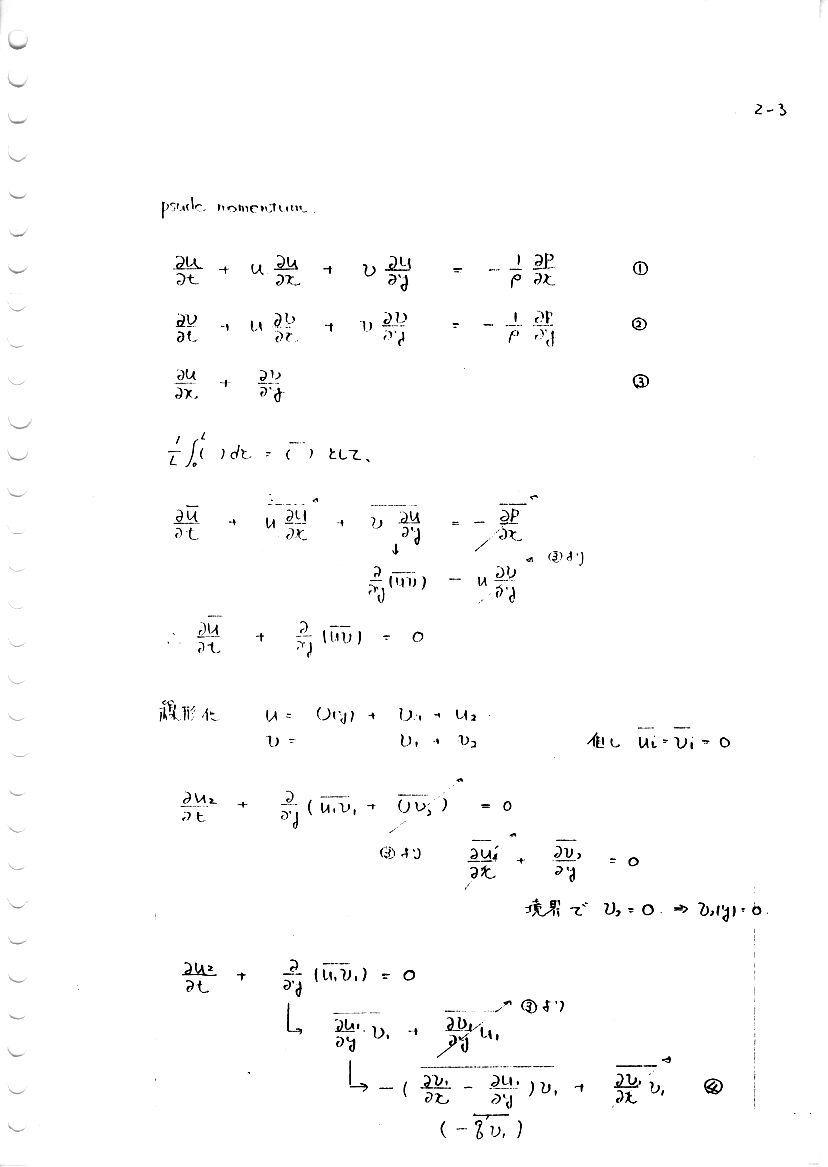 2-3
psude momentum.
∂u/∂t + u ∂u/∂x + v ∂u/∂y = - 1/ρ ∂P/∂x ①
∂v/∂t + u ∂v/∂x + v ∂v/∂y = - 1/ρ ∂P/∂y ②
∂u/∂x + ∂v/∂y ③
1/L ∫₀ᴸ ( ) dx = (‾) として、
∂ū/∂t + u ∂u/∂x + v ∂u/∂y = - ∂P/∂x
↓ ③より
∂/∂y (uv) - u ∂v/∂y
∴ ∂u/∂t + ∂/∂y (uv) = 0
線形化 u = U(y) + u₁ + u₂
v = v₁ + v₂ 但し ui = vi = 0
∂u₂/∂t + ∂/∂y ( u₁v₁ + Uv₂ ) = 0
③より ∂ui/∂x + ∂v₂/∂y = 0
境界で v₂ = 0. ⇒ v₂(y) = 0.
∂u₂/∂t + ∂/∂y (u₁v₁) = 0
③より
∂u₁/∂y v₁ + ∂v₁/∂y u₁
→ - ( ∂v₁/∂x - ∂u₁/∂y ) v₁ + ∂v₁/∂x v₁ ④
( - qv₁ )